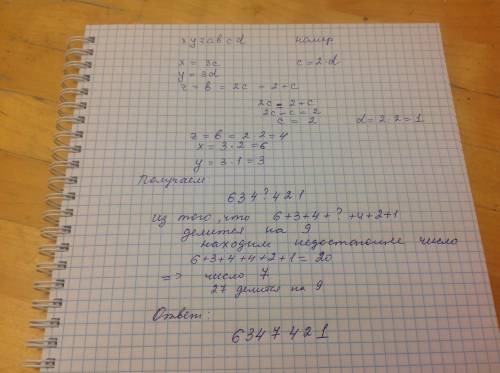 xyzabcd номер
x = 3c c = 2·d
y = 3d
z = b = 2c = 2+c
2c = 2+c
2c-c = 2
c = 2 d = 2:2 = 1
z = b = 2·2 = 4
x = 3·2 = 6
y = 3·1 = 3
Получаем
634?421
из того, что 6+3+4+?+4+2+1
делится на 9
находим недостающее число
6+3+4+4+2+1 = 20
=> число 7
27 делится на 9
Ответ:
6347421